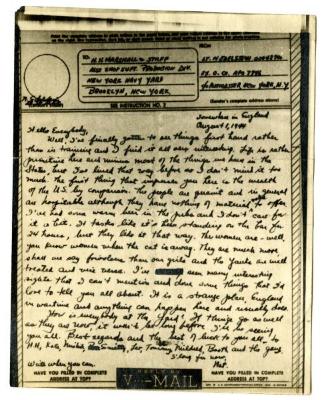 Print the complete address in plain block letters in the panel below, and your return address in the space provided.
TO: H.H. MARSHALL & STAFF
ASST SHOP SUPT. PRODUCTION DIV.
NEW YORK NAVY YARD
BROOKLYN, NEW YORK.
FROM
APO 7786
% POSTMASTER, NEW YORK, N.Y.
(Sender's complete address above)
SEE INSTRUCTION NO. 2
Somewhere in England
August 1, 1944
Hello Everybody,
Well, I'm finally gettin to see things first hand rather
than in training and I find it all very interesting. Life is rather
primitive here and minus most of the things we have in the
States but I've lived that way before so I don't mind it too
much. The first thing that impresses you here is the
of the U.S. by comparison. The people are quaint and in general
are hospitable although they have nothing of material to offer.
I've had some warm beer in the pubs and I don't care for
it a bit. It tastes like it's been standing on the bar for
24 hours, but they like it that way. The women are - well
you know women when the cat is away. They are much more
shall we say forward than our girls and the Yanks are well
treated and vice versa. I've seen many interesting
sights that I can't mention and done some things that I'd
love to tell you all about. It is a strange place, England
in wartime and anything can happen here and usually does.
How is everybody at the Yard? If things go as well
as they are now, it won't be long before I'm seeing
you all. Best regards and the best of luck to you all, to
H.H., Smitty, Les, Tommy, Mildred, Scotty and the gang.
S'long for now
Write when you can.
HAVE YOU FILLED IN COMPLETE
ADDRESS AT TOP?
V-MAIL
HAVE YOU FILLED IN COMPLETE
ADDRESS AT TOP?